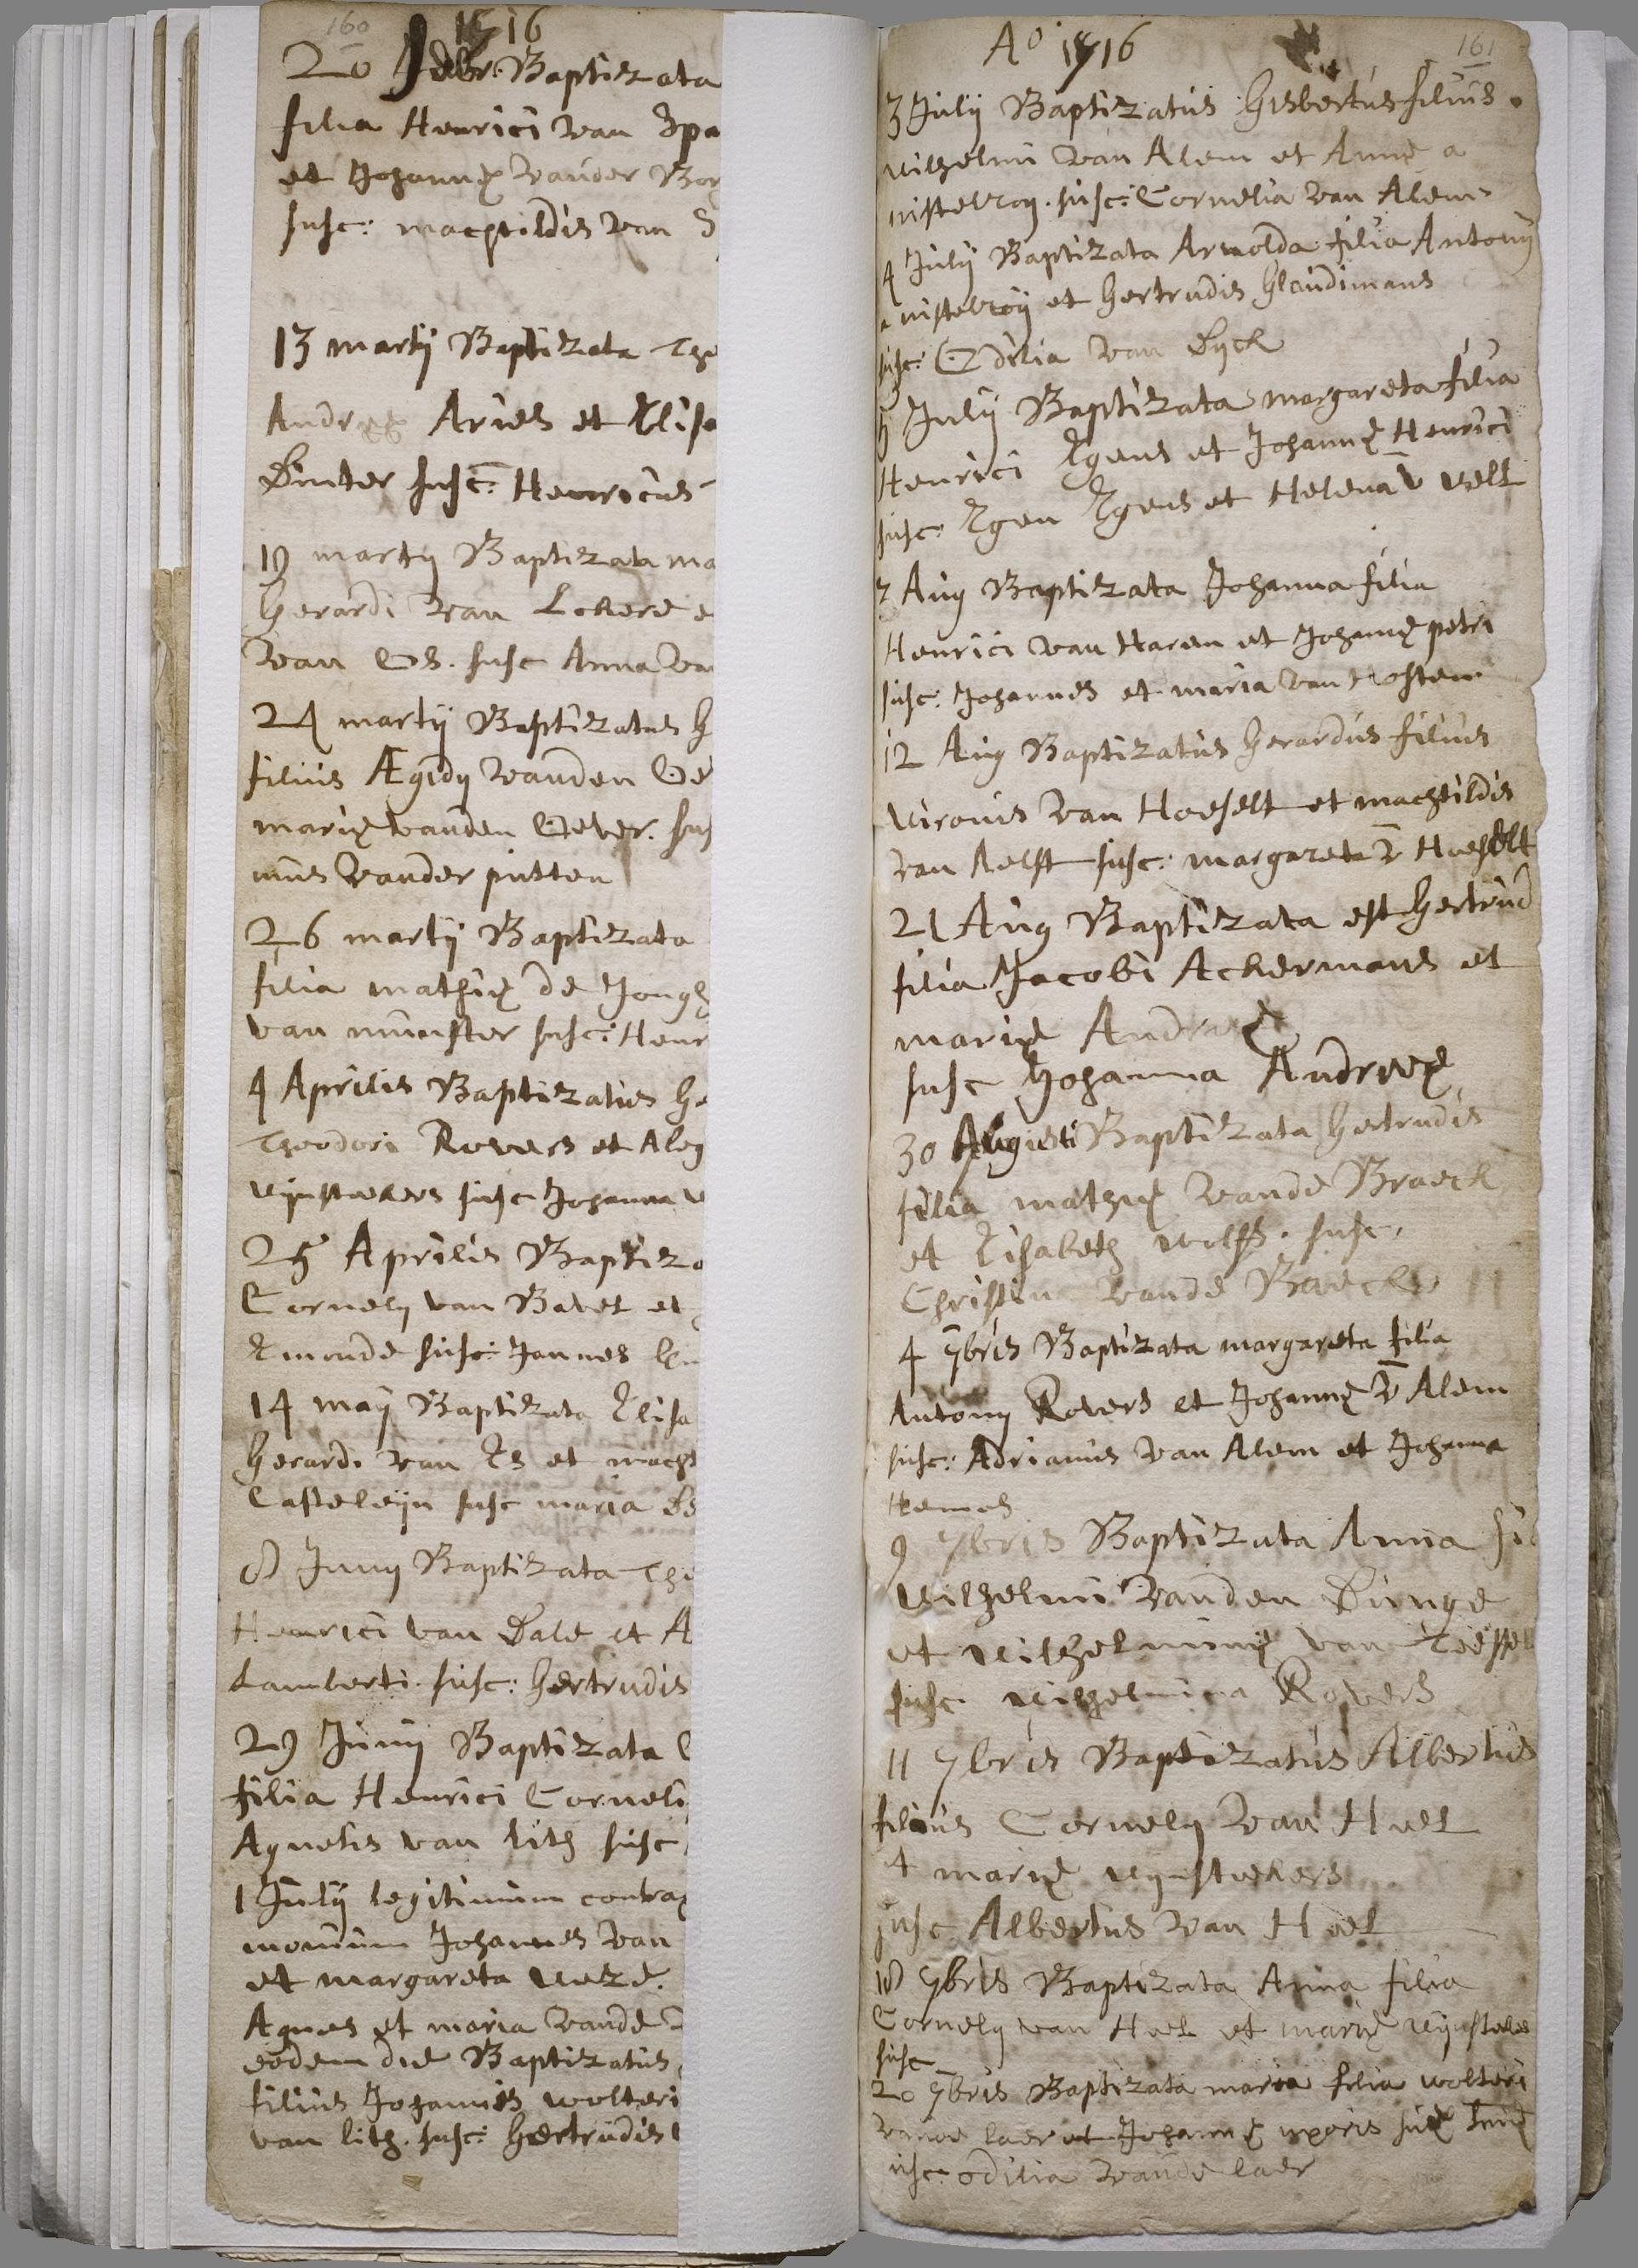 160
1716
20 Febr: Baptizata
filia Henrici van Spa
et Johannę vander Bor
susc: machtildis van S
13 martij Baptizata The
Andreę Aries et Elisa
Dinter susc: Henricus
19 martij Baptizata ma
Gerardi van Lckere e
van Os. susc Anna va
24 martij Baptizatus G
filius Ægidij vanden Oe
marię vanden Oever. sus
nus vander putten
26 martij Baptizata
filia mathię de Jongh
van munster susc: Henr
4 Aprilis Baptizatus Ge
Theodori Rovers et Aleg
wijnstekers susc Johanna v
25 Aprilis Baptiza
Cornelij van Bavel et
Emonde susc: Jannes
14 maij Baptizata Elisa
Gerardi van Es et macht
Casteleijn susc maria
8 Junij Baptizata The
Henrici van Dale et A
Lamberti. susc: Gertrudis
29 Junij Baptizata C
filia Henrici Corneli
Agnetis van lith susc
1 Julij legitimum contrax
monium Johannes van
et margareta
Agnes et maria vande
eodem die Baptizatus
filius Johannis wolteri
van lith. susc: Gertrudis
Ao 1716
161
3 Julij Baptizatus Gisbertus filius
wilhelmi van Alem et Annę a
nistelroy. susc: Cornelia van Alem
4 Julij Baptizata Arnolda filia Antonij
a nistelroij et Gertrudis Glaudimans
susc: Odilia van Dyck
5 Julij Baptizata margareta filia
Henrici Egens et Johannę Henrici
susc: Egen Egens et Helena v velt
7 Aug Baptizata Johanna filia
Henrici van Haren et Johannę petri
susc: Johannes et maria van
12 Aug Baptizatus Gerardus filius
wironis van Hoeselt et machtildis
van Aelst susc: margareta v Hoeselt
21 Aug Baptizata est Gertrud
filia Jacobi Ackermans et
marię Andreę
susc Johanna Andreę
30 Augusti Baptizata Gertrudis
filia mathię vande Braeck
et Elisabeth wolffs. susc.
Christina vande Braeck
4 7bris Baptizata margareta filia
Antonij Rovers et Johannę v Alem
susc: Adrianus van Alem et Johanna
Hemels
9 7bris Baptizata Anna fil
wilhelmi vanden Dunge
et wilhelminę van
susc. wilhelmina Rovers
11 7bris Baptizatus Albertus
filius Cornelij van Heel
et marię wijnstekers
susc Albertus van Heel
18 7bris Baptizata Anna filia
Cornelij van Heel et marię wijnstekers
susc
20 7bris Baptizata maria filia wolteri
vande laer et Johannę uxoris suę
susc: odilia vande laer